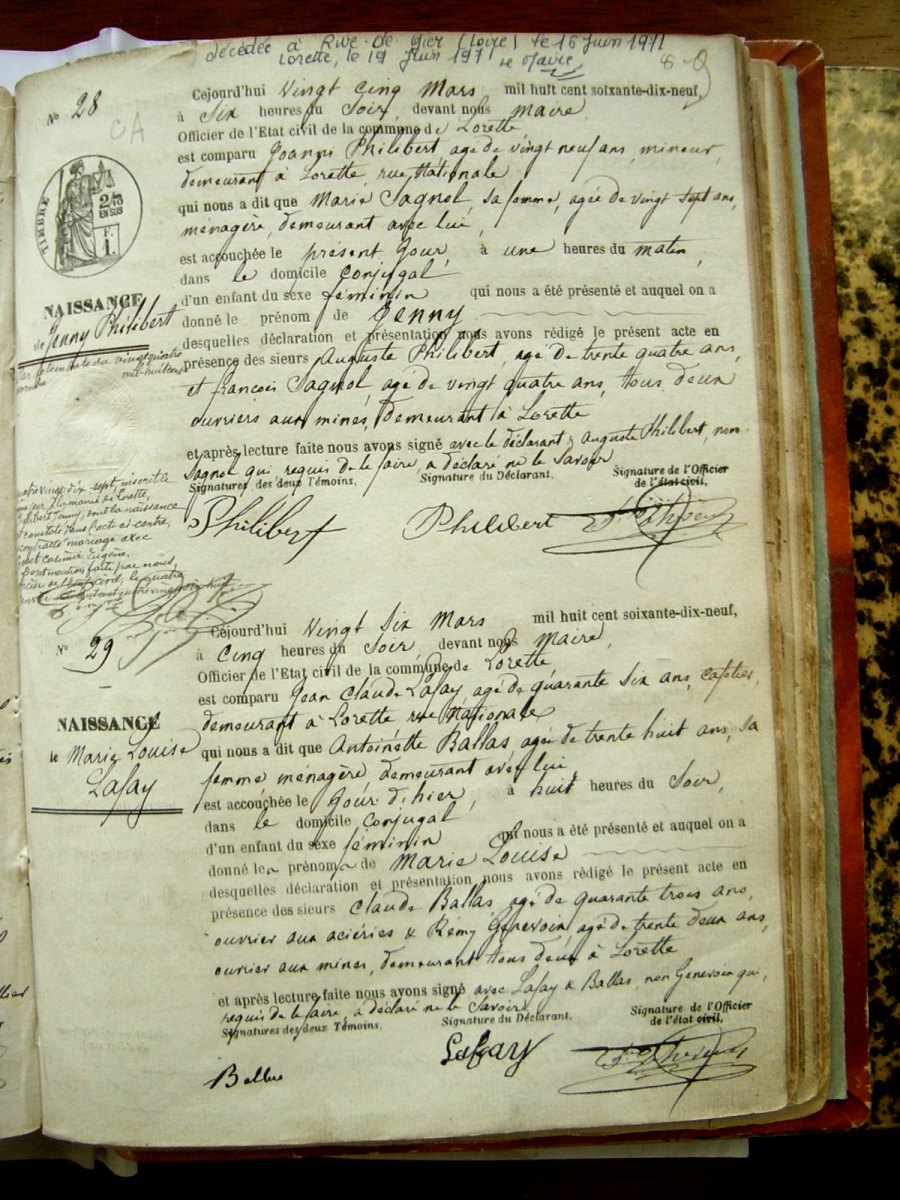 décédée à Rive-de-Gier (Loire) le 16 juin 1971
Lorette, le 19 Juin 1971 Le Maire
8
N° 28
CA
TIMBRE
2/10
EN SUS
NAISSANCE
de Jenny Philibert
Cejourd'hui Vingt Cinq Mars mil huit cent soixante-dix-neuf,
à Six heures du Soir, devant nous Maire
Officier de l'Etat civil de la commune de Lorette
est comparu Joanni Philibert agé de vingt neuf ans, mineur,
demeurant à Lorette rue Nationale
qui nous a dit que Marie Sagnol, sa femme, agée de vingt sept ans,
menagère, demeurant avec lui,
est accouchée le présent Jour, à une heures du matin,
dans le domicile Conjugal
d'un enfant du sexe féminin qui nous a été présenté et auquel on a
donné le prénom de Jenny
desquelles déclaration et présentation nous avons rédigé le présent acte en
présence des sieurs Auguste Philibert, agé de trente quatre ans,
et françois Sagnol agé de vingt quatre ans, tous deux
ouvriers aux mines, demeurant à Lorette
et après lecture faite nous avons signé avec le déclarant & Auguste Philibert, non
Sagnol qui requis de le faire, a déclaré ne le Savoir
Signatures des deux Témoins. Signature du Déclarant. Signature de l'Officier
de l'état civil,
Philibert Philibert
vingt quatre
mil-huit cent
quatre vingt dix-sept inscrit le
mairie de Lorette,
Philibert Jenny, dont la naissance
constatée dans l'acte ci-contre,
contracté mariage avec
Casimir Eugène.
Dont mention faite par nous,
officier de l'état civil, le quatre
N° 29
NAISSANCE
de Marie Louise
Lafay
Cejourd'hui Vingt Six Mars mil huit cent soixante-dix-neuf,
à Cinq heures du Soir, devant nous Maire
Officier de l'Etat civil de la commune de Lorette
est comparu Jean Claude Lafay agé de quarante Six ans, cafetier,
demeurant à Lorette rue Nationale
qui nous a dit que Antoinette Ballas, agée de trente huit ans, sa
femme ménagère demeurant avec lui
est accouchée le Jour d'hier, à huit heures du Soir,
dans le domicile Conjugal
d'un enfant du sexe féminin qui nous a été présenté et auquel on a
donné les prénoms de Marie Louise
desquelles déclaration et présentation nous avons rédigé le présent acte en
présence des sieurs Claude Ballas, agé de quarante trois ans,
ouvrier aux aciéries & Rémy Genevoin agé de trente deux ans,
ouvrier aux mines, demeurant tous deux à Lorette
et après lecture faite nous avons signé avec Lafay & Ballas, non Genevoin qui,
requis de le faire, a déclaré ne le Savoir
Signatures des deux Témoins. Signature du Déclarant. Signature de l'Officier
de l'état civil,
Lafay
Ballas